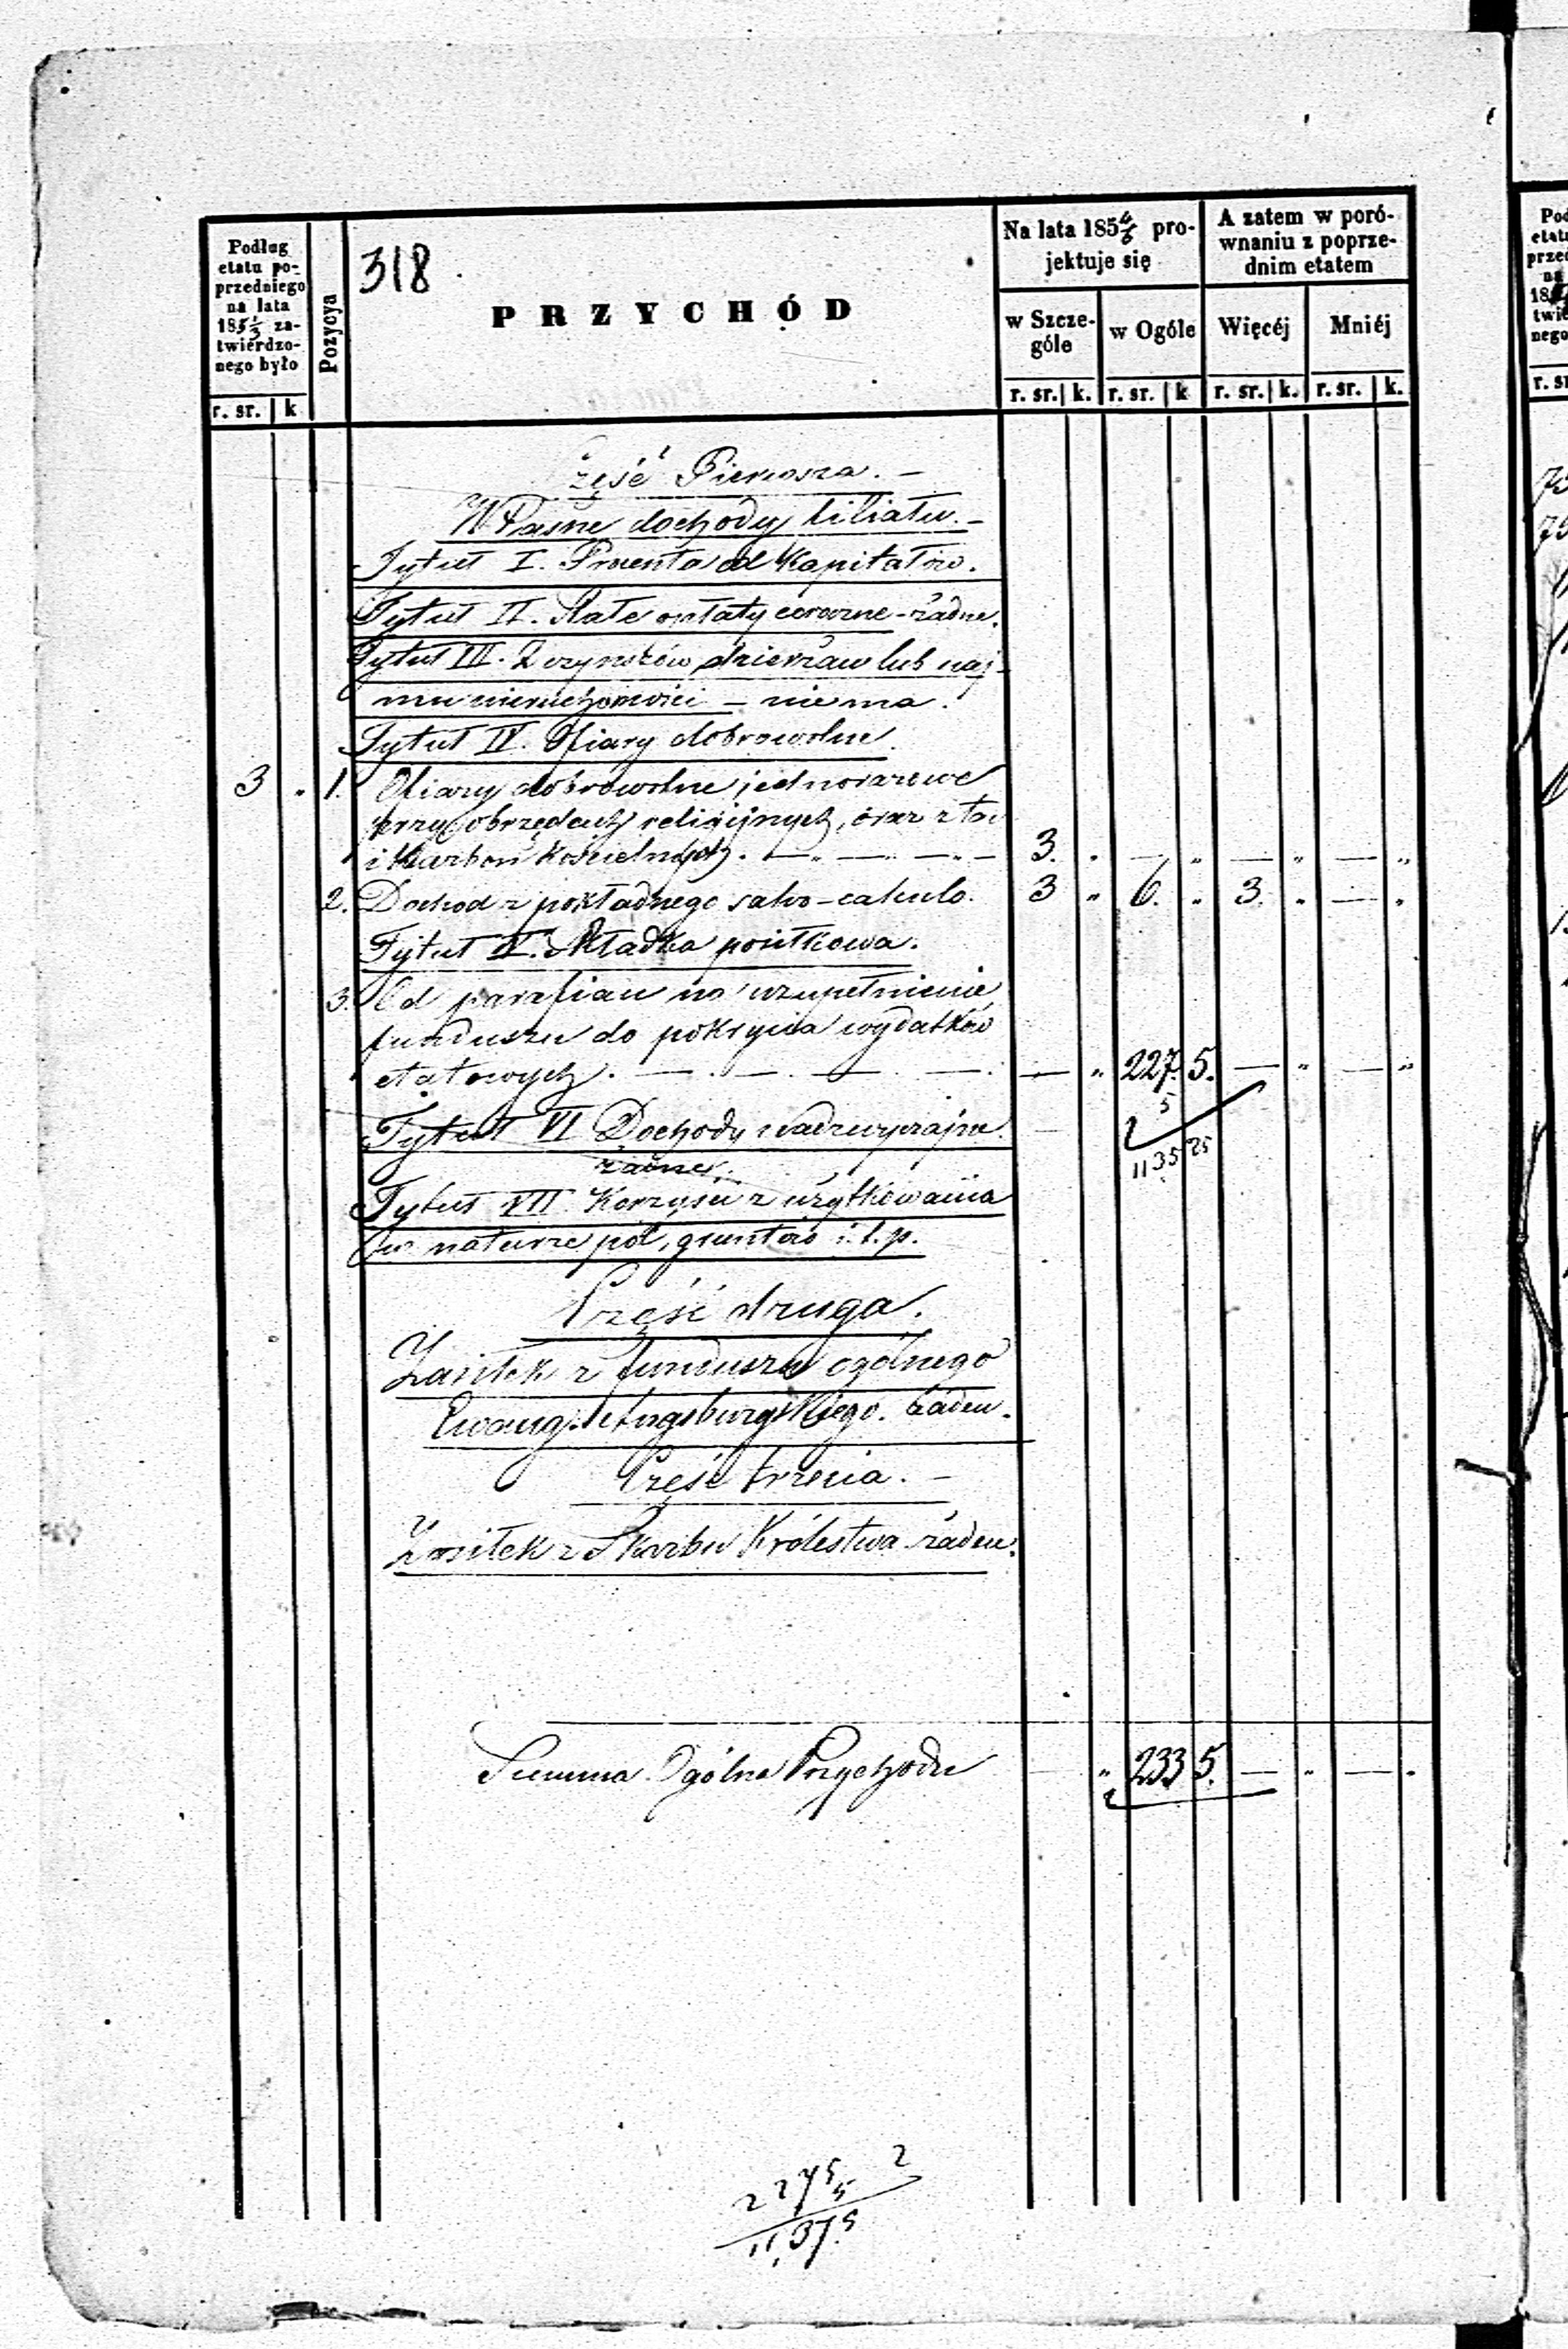 Podług
etatu po-
przedniego
na lata
185 1/3 za-
twierdzo-
nego było
r. sr. | k
Pozycya
318
PRZYCHÓD
Na lata 185 4/6 pro-
jektuje się
w Szcze-
góle
w Ogóle
r. sr. | k. r. sr. | k
A zatem w poró-
wnaniu z poprze-
dnim etatem
Więcéj
Mniéj
r. sr. | k. r. sr. | k.
Część Pierwsza. —
Własne dochody filiału. —
Tytuł I. Procenta od Kapitałów.
Tytuł II. Stałe opłaty coroczne - żadne.
Tytuł III. Z czynszów, dzierżaw lub naj-
mu nieruchomości — nie ma.
Tytuł IV. Ofiary dobrowolne.
3 " 1. Ofiary dobrowolne jednorazowe
przy obrzędach religijnych, oraz z tac
i skarbon Kościelnych. — . — . — . — 3. " — " — " — "
2. Dochod z pokładnego salvo-calculo. 3 " 6. " 3. " — "
Tytuł V. Składka posiłkowa.
3. Od parafian na uzupełnienie
funduszu do pokrycia wydatków
etatowych. — . — . — . — . — " 227. 5. — " — "
5
1135 25
Tytuł VI Dochody nadzwyczajne.
żadne.
Tytuł VII. Korzyści z użytkowania
w naturze pól, gruntów i. t. p.
Część druga.
Zasiłek z funduszu ogólnego
Ewang. Augsburgskiego. żaden.
Część trzecia. —
Zasiłek z Skarbu Królestwa żaden.
Summa Ogólna Przychodu — " 233 5. — " — "
227 5 2
5
1137. 5